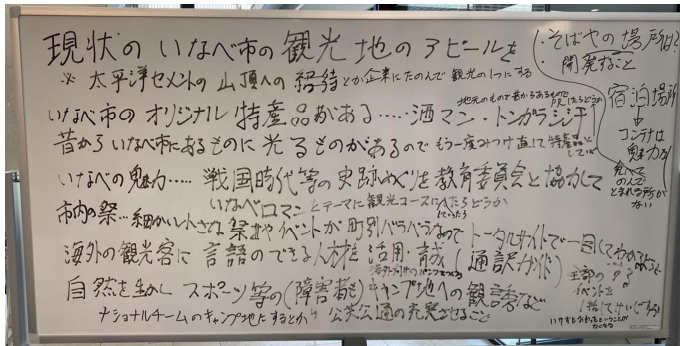 現状の いなべ市の 観光 地の アピールを
※ 太平洋セメントの 山頂への 招待とか企業にたのんで 観光の1つにする
いなべ市の オリジナル 特産品がある‥‥‥酒マン・トンガラシ汁
地元のもので昔からあるもので
PRしたらどうか
昔から いなべ市にあるものに 光るものがあるので もう一度みつけ直して特産品に
していく
いなべの魅力‥‥‥ 戦国時代等の 史跡めぐりを 教育委員会と協力して
いなべロマンとテーマに観光コースに入れたらどうか
市内の祭‥‥細かい小さな 祭りやイベントが 町別バラバラなので トータルサイトで一目して
海外の観光客に 言語のできる人材を 活用・育成 (通訳ガイド)
海外向けの
自然を生かし スポーツ等の(障害者も)キャンプ地への 観誘など
ナショナルチームのキャンプ地にするとか 公共交通の充実させること
・そばやの 場所は?
・開発すること
宿泊場所
コンテナは
魅力
食べて
のんで
とまれる所が
ない
全部の
イベントを